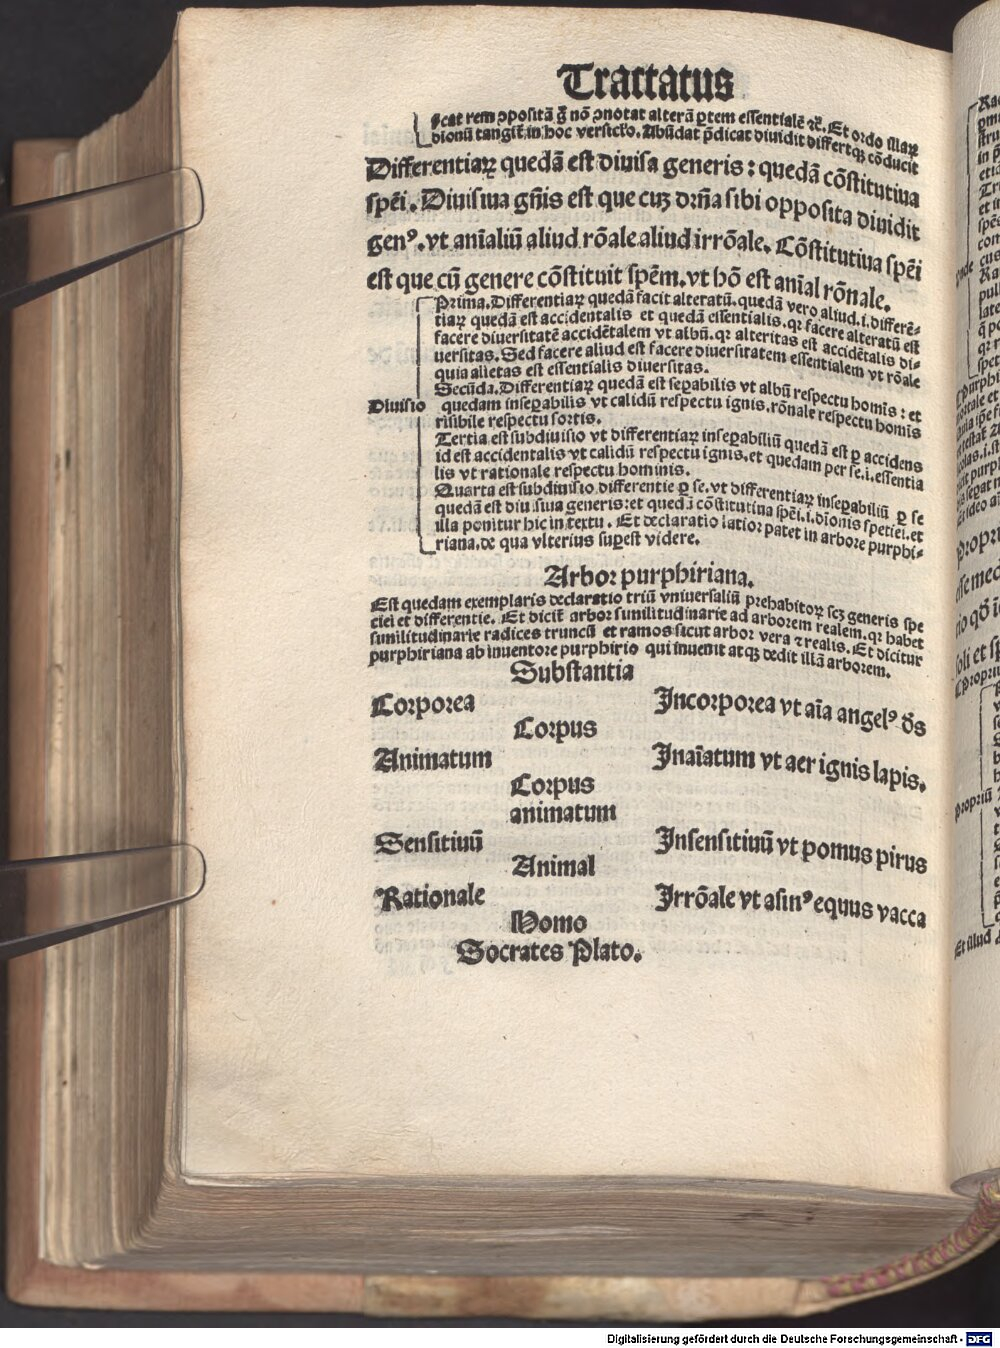 Tractatus
ſcat rem ꝓpoſitā ꝗ̄ nō ꝯnotat alterā ꝑtem eſſentialē ⁊c̄. Et ordo illaꝝ
dionū tangit̄ in hoc verſic̄lo. Abūdat p̄dicat diuidit differtqꝫ cōducit
Differentiaꝝ quedā eſt diuiſa generis : quedā cōſtitutiua
ſpēi. Diuiſiua gn̄is eſt que cuꝫ dr̄na ſibi oppoſita diuidit
genꝰ. vt anīaliū aliud rōale aliud irrōale. Cōſtitutiua ſpēi
eſt que cū genere cōſtituit ſpēm. vt hō eſt anīal rōnale.
Prima. Differentiaꝝ quedā facit alteratū. quedā vero aliud. i. differē⸗
tiaꝝ quedā eſt accidentalis et quedā eſſentialis. qꝛ facere alteratū eſt
facere diuerſitatē accidētalem vt albū. qꝛ alteritas eſt accidētalis di⸗
uerſitas. Sed facere aliud eſt facere diuerſitatem eſſentialem vt rōale
quia alietas eſt eſſentialis diuerſitas.
Secūda. Differentiaꝝ quedā eſt ſeꝑabilis vt albū reſpectu homīs : et
Diuiſio quedam inſeꝑabilis vt calidū reſpectu ignis. rōnale reſpectu homīs
riſibile reſpectu ſortis.
Tertia eſt ſubdiuiſio vt differentiaꝝ inſeꝑabiliū quedā eſt ꝑ accidens
id eſt accidentalis vt calidū reſpectu ignis. et quedam per ſe. i. eſſentia
lis vt rationale reſpectu hominis.
Quarta eſt ſubdiuiſio differentie ꝑ ſe. vt differentiaꝝ inſeꝑabiliū ꝑ ſe
quedā eſt diuiſiua generis : et quedā cōſtitutiua ſpēi. i. dionis ſpeciei. et
illa ponitur hic in textu. Et declaratio latioꝛ patet in arbore purphi⸗
riana. de qua vlterius ſuꝑeſt videre.
Arboꝛ purphiriana.
Eſt quedam exemplaris declaratio triū vniuerſaliū prehabitoꝝ ſcꝫ generis ſpe
ciei et differentie. Et dicit̄ arboꝛ ſimilitudinarie ad arborem realem. qꝛ habet
ſimilitudinarie radices truncū et ramos ſicut arboꝛ vera ⁊ realis. Et dicitur
purphiriana ab inuentore purphirio qui inuenit atqꝫ dedit illā arborem.
Subſtantia
Coꝛpoꝛea Incoꝛpoꝛea vt aīa angelꝰ d̄s
Coꝛpus
Animatum Inaīatum vt aer ignis lapis.
Coꝛpus
animatum
Senſitiuū Inſenſitiuū vt pomus pirus
Animal
Rationale Irrōale vt aſinꝰ equus vacca
Homo
Socrates Plato.
Digitalisierung gefördert durch die Deutsche Forschungsgemeinschaft - DFG